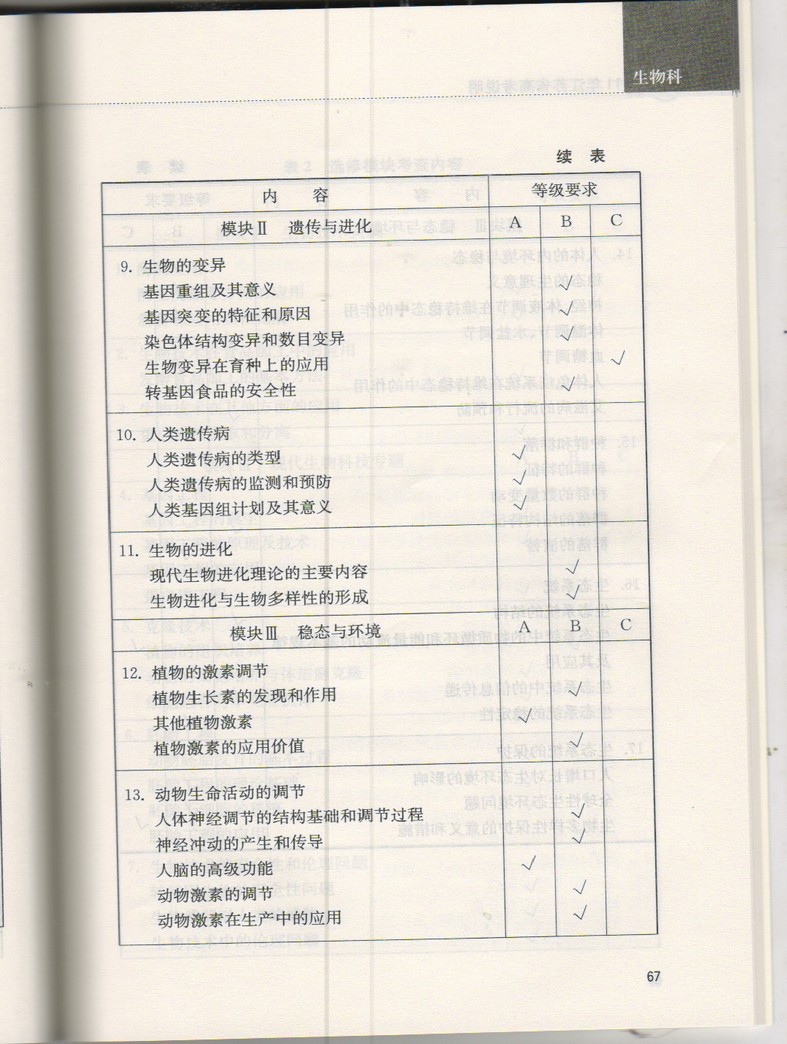 生物科
续 表
内 容 等级要求
模块Ⅱ 遗传与进化 A B C
9. 生物的变异
基因重组及其意义 √
基因突变的特征和原因 √
染色体结构变异和数目变异 √
生物变异在育种上的应用 √
转基因食品的安全性 √
10. 人类遗传病
人类遗传病的类型 √
人类遗传病的监测和预防 √
人类基因组计划及其意义 √
11. 生物的进化
现代生物进化理论的主要内容 √
生物进化与生物多样性的形成 √
模块Ⅲ 稳态与环境 A B C
12. 植物的激素调节
植物生长素的发现和作用 √
其他植物激素 √
植物激素的应用价值 √
13. 动物生命活动的调节
人体神经调节的结构基础和调节过程 √
神经冲动的产生和传导 √
人脑的高级功能 √
动物激素的调节 √
动物激素在生产中的应用 √
67